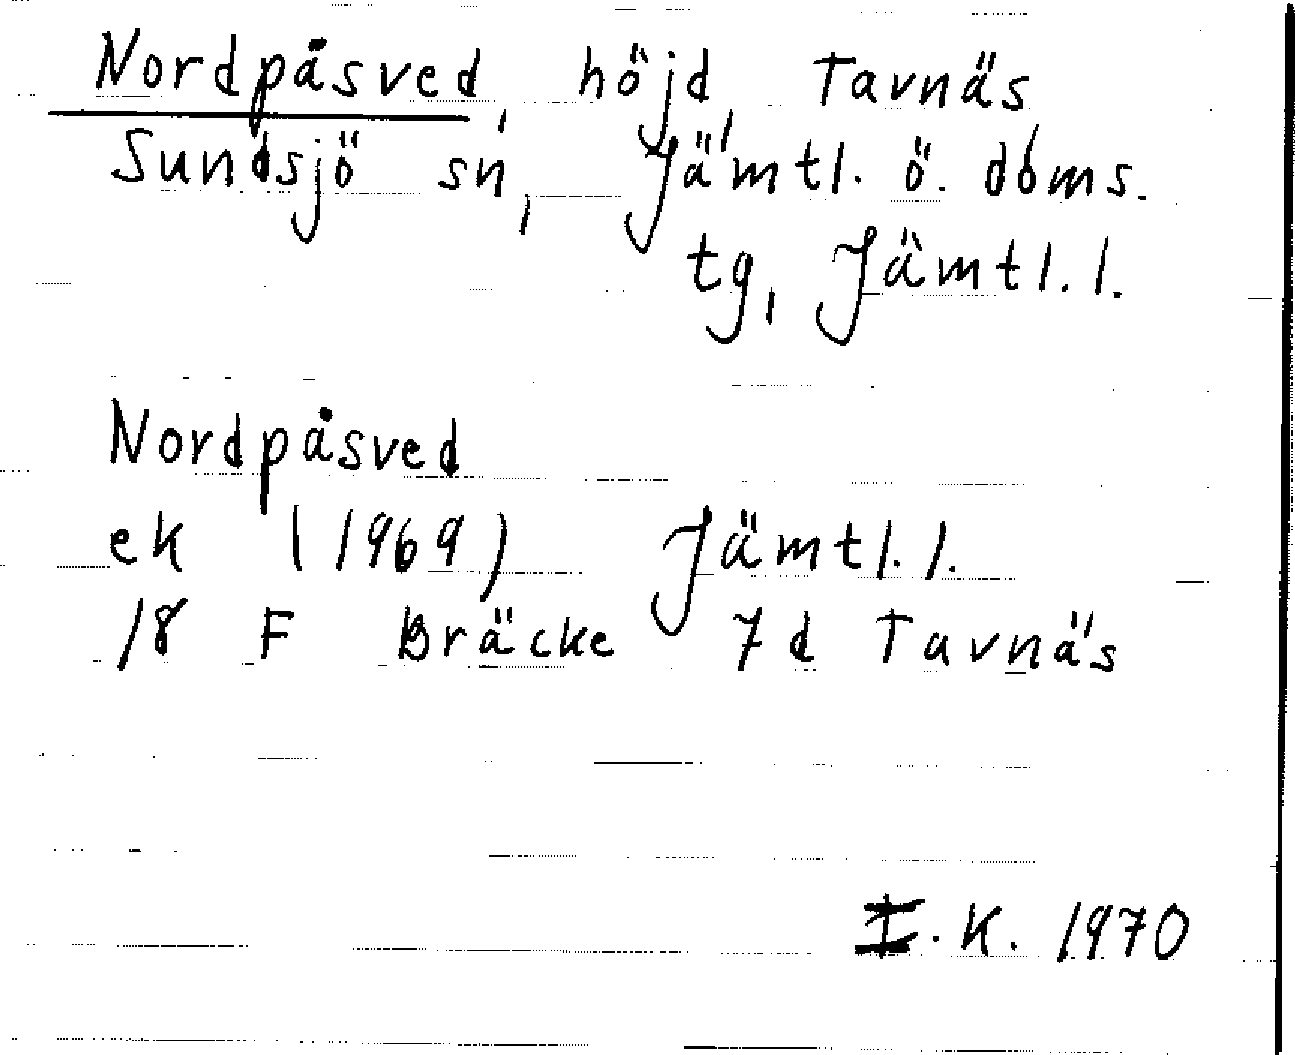 Nordpåsved, höjd, Tavnäs,
Sundsjö sn, Jämtl. ö. doms.
tg, Jämtl. l.
Nordpåsved
ek (1969) Jämtl. l.
18 F Bräcke 7d Tavnäs
I. K. 1970